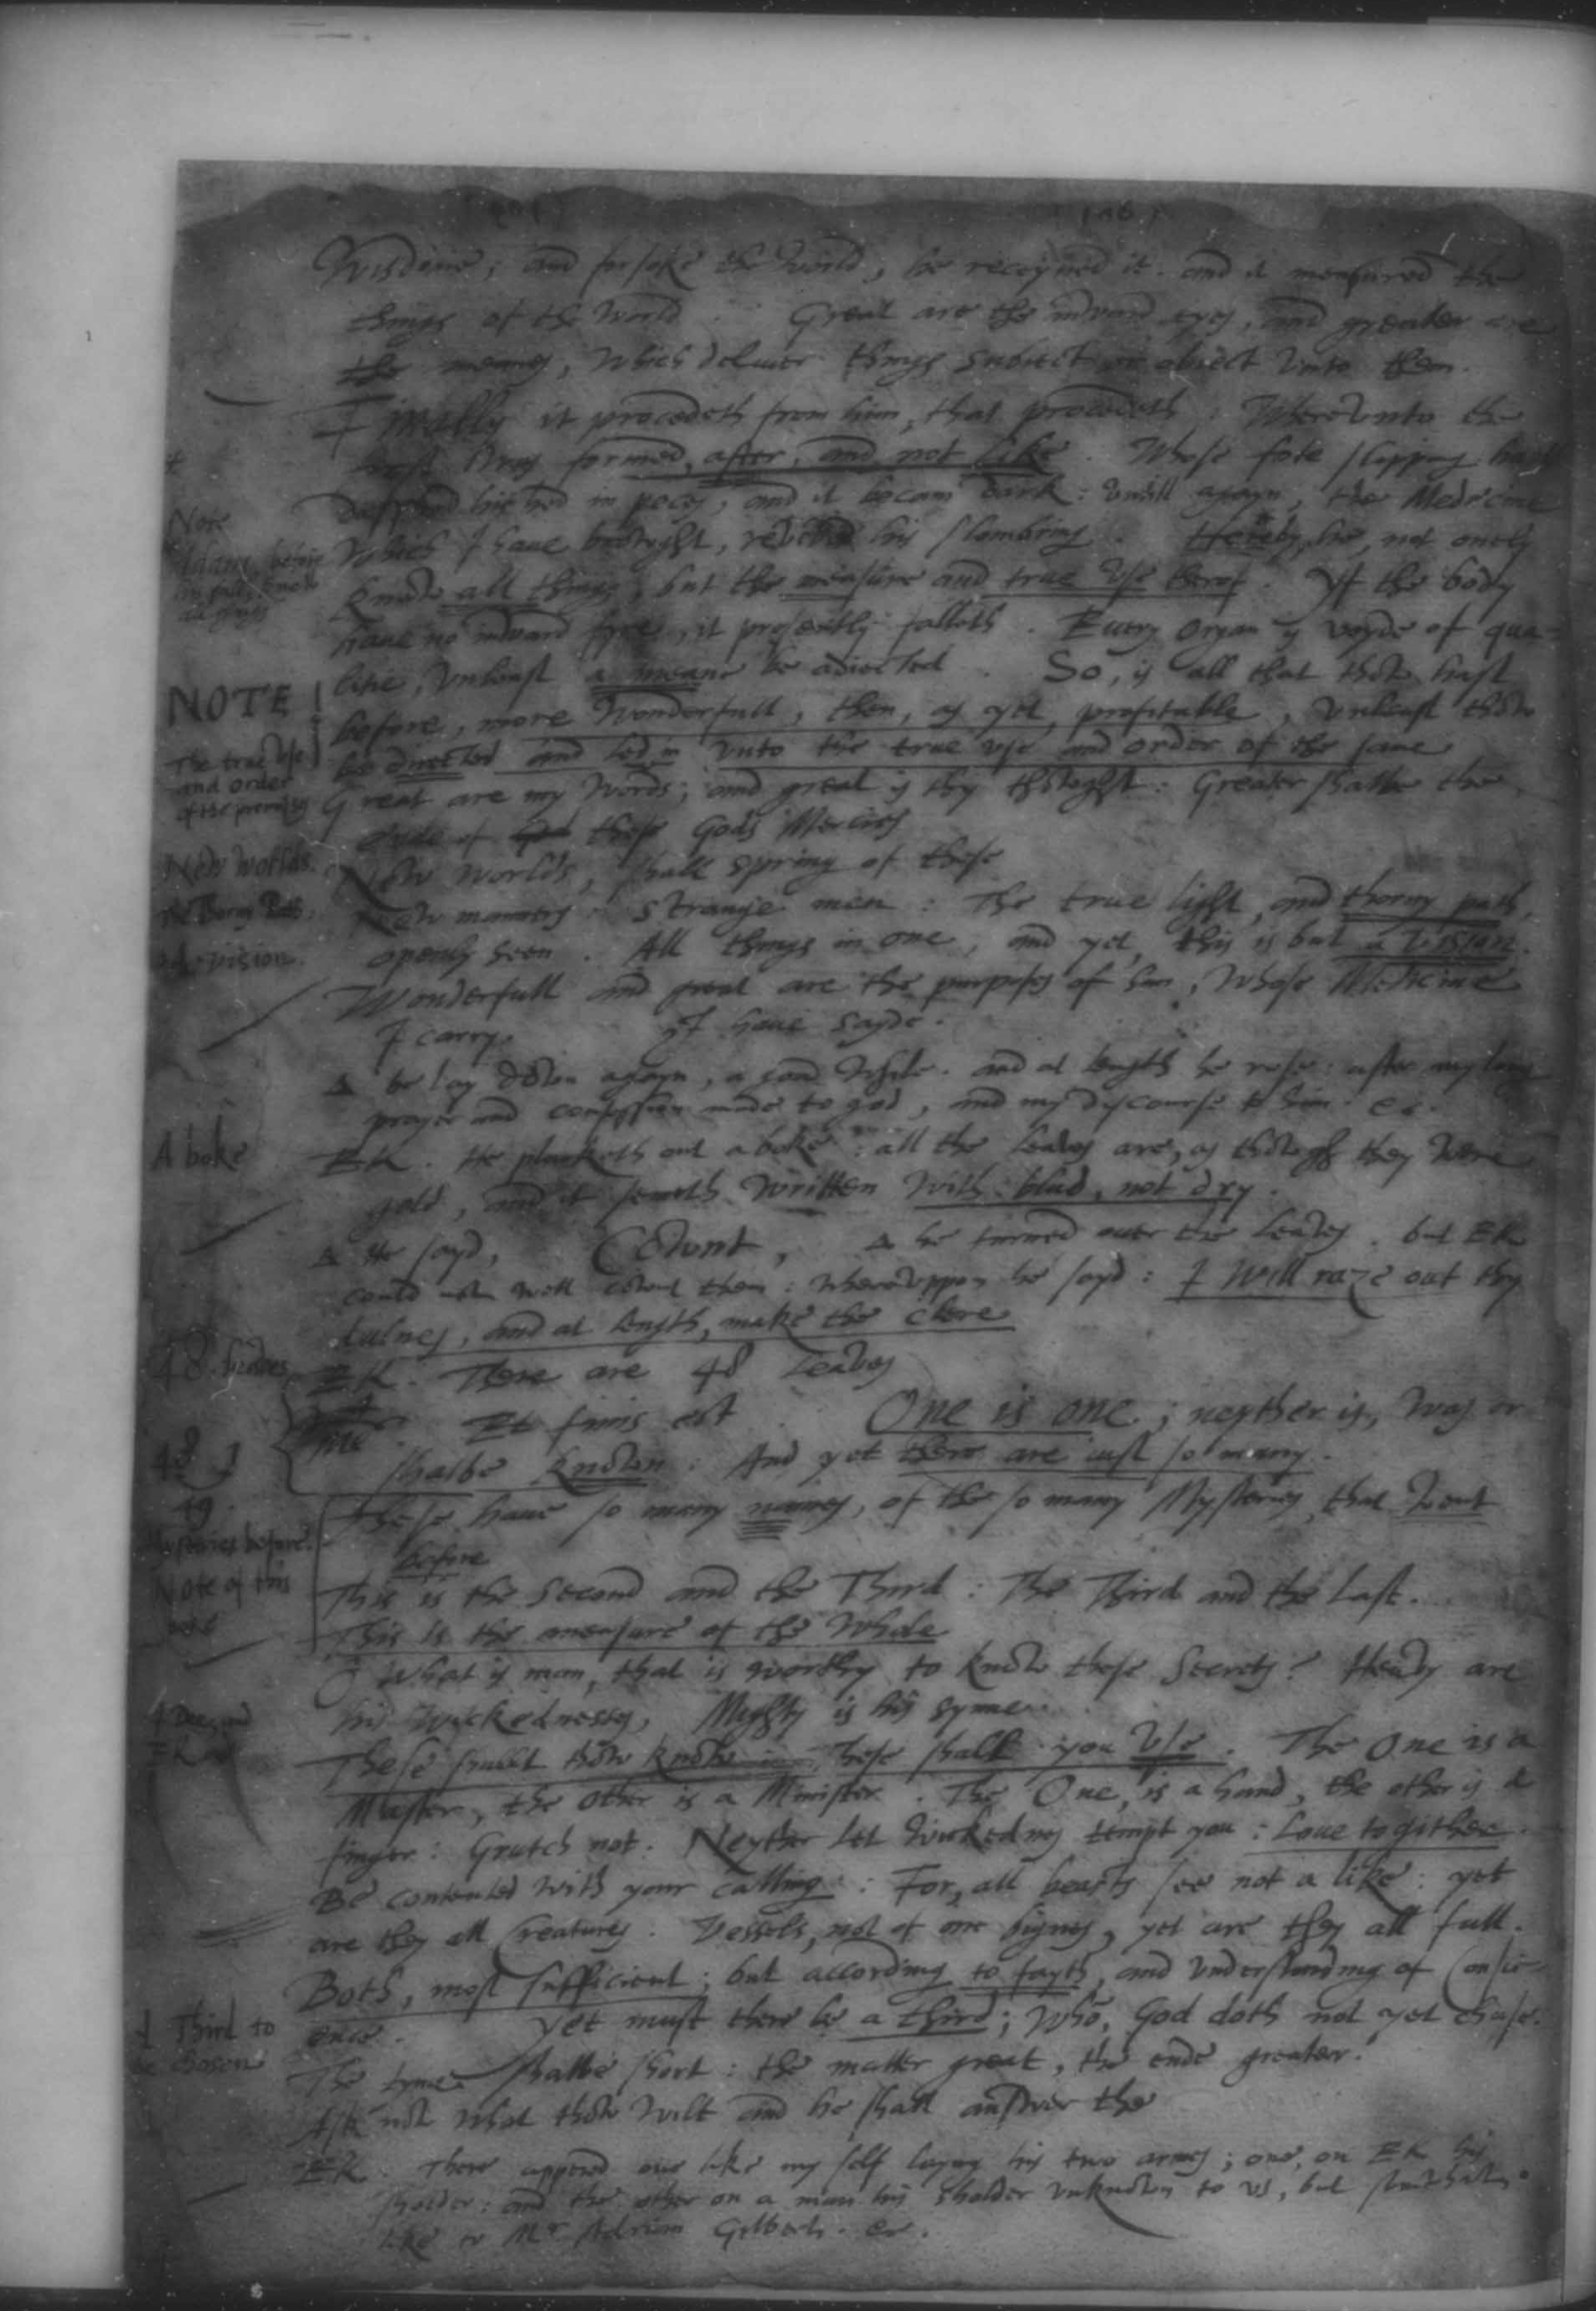 Wisdome; and forsoke the World, he receyved it. and it measured the
things of the World. Great are the inward eyes, and greater are
the meanes, which deliver things subiect or obiect unto them.
Finally it procedeth from him, that procedeth: Whereunto the
first was formed, after, and not like. Whose fote slipping hath
his hed in peces, and it becam dark: untill agayn, the Medicine
Note
Which I have browght, revived his slombring. Hereby, he, not onely
Adam, before
his fall, knew
all things
knew all things, but the measure and true use therof. If the body
have no inward fyre, it presently falleth. Every Organ is voyde of qua=
NOTE
litie, unleast a meane be adiected. So, is all that thow hast
before, more wonderfull, then, as yet, profitable, unleast thow
The true use
and order
of the premisses
be directed and led in unto the true use and order of the same
Great are my words; and great is thy thowght: Greater shalbe the
ende of these Gods Mercies
New Worlds.
New Worlds, shall spring of these
The thorny Path.
New manners: strange men: The true light, and thorny path,
A vision.
openly seen. All things in one, and yet, this is but a vision.
Wonderfull and great are the purposes of him, Whose Medicine
I carry. I have sayde.
Δ he lay down agayn, a good while. and at length he rose: after my long
prayer and confession made to god, and my discourse to him. &c.
A boke
EK. He plucketh out a boke: all the leaves are, as thowgh they were
gold, and it semeth written with blud, not dry.
Δ He sayd, Cownt, Δ he turned over the leaves. but EK
could not well cownt them: whereuppon he sayd: I will raze out thy
dulnes, and at length, make the clere
48 leaves
EK. There are 48 leaves
Me. Et finis est. One is one; neyther is, was or
48
shalbe knowen: And yet there are iust so many.
49.
These have so many names, of the so many Mysteries, that went
Mysteries before.
before
Note of this
boke
This is the second and the Third: The Third and the last.
This is the measure of the Whole
O what is man, that is worthy to know these Secrets? Heavy are
his wickednesses, Mighty is his synne.
Δ Dee, and
EK
These shalt thow know: These shall you use. The One is a
Master, the other is a Minister. The One, is a hand, the other is a
finger: Grutch not. Neyther let wickednes tempt you: Love togither.
Be contented with your calling: For, all beasts see not a like: yet
are they all Creatures. Vessels, not of one bignes, yet are they all full.
Both, most sufficient; but according to fayth, and understanding of Consci=
A Third to
be chosen
ence. Yet must there be a third; Who, God doth not yet chuse.
The tyme shalbe short: the matter great, the ende greater.
Ask now what thow wilt and he shall answer the
EK. There appered one like my self laying his two armes; one, on EK his
sholder: and the other on a man his sholder unknowen to us, but somewhat
like to Mr Adrian Gilbert. &c.